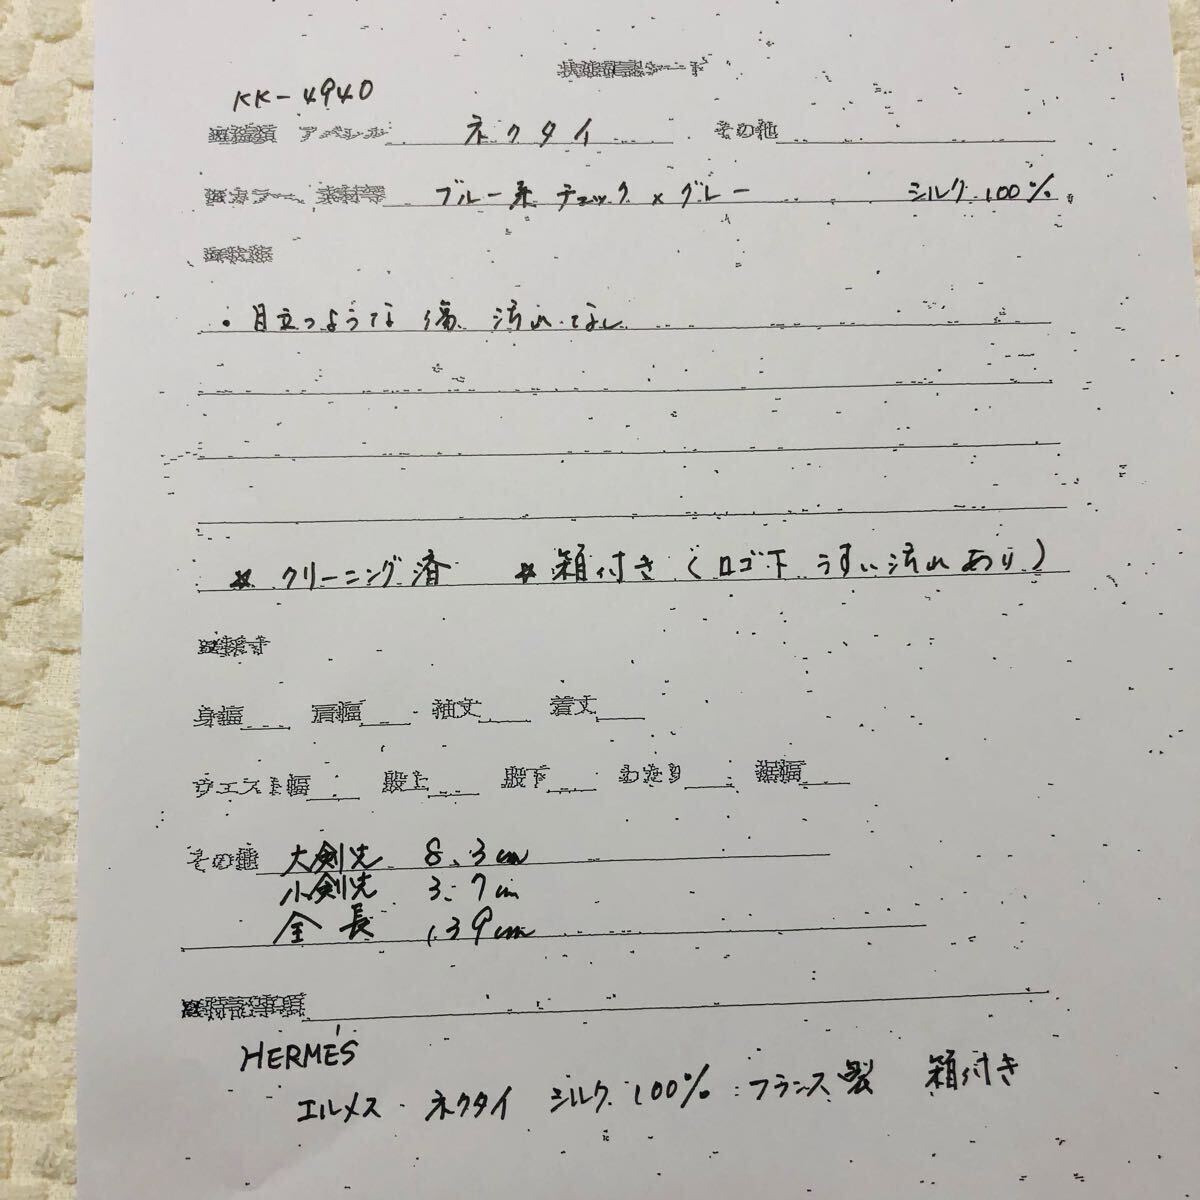 状態確認シード
KK-4940
アパレル ネクタイ その他
カラー 素材等 ブルー系チェック×グレー シルク100%
・目立つような傷 汚れなし
※クリーニング済 ※箱付き(ロゴ下 うすい汚れあり)
採寸
身幅 肩幅 袖丈 着丈
ウエスト幅 股上 股下 わたり 裾幅
その他 大剣先 8.3cm
小剣先 3.7cm
全長 139cm
特記事項
HERMÉS
エルメス・ネクタイ シルク100% フランス製 箱付き